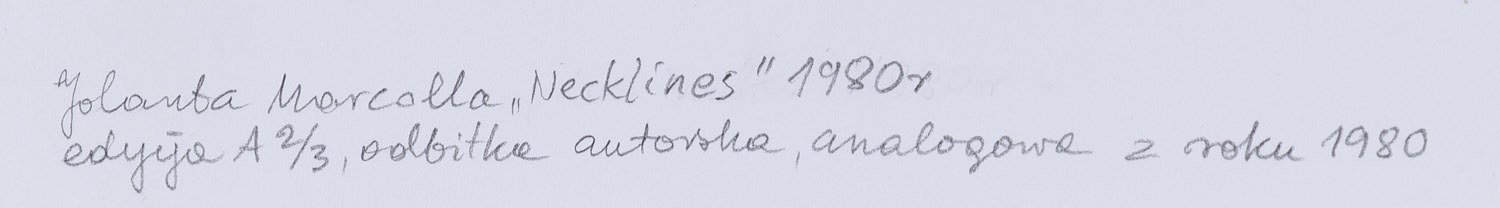 Jolanta Marcolla „Necklines" 1980r
edycja A 2/3, odbitka autorska, analogowa z roku 1980